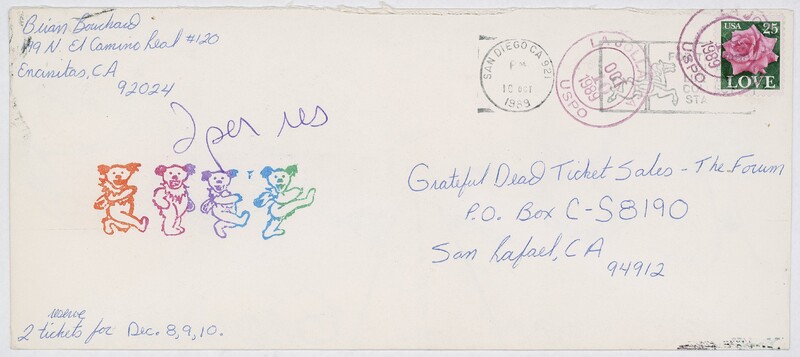 Brian Bouchard
119 N. El Camino Real #120
Encinitas, CA
92024
SAN DIEGO CA 921
PM
10 OCT
1989
LA JOLLA
OCT
1989
USPO
LA JOLLA
1989
USPO
USA 25
LOVE
2 per res
Grateful Dead Ticket Sales - The Forum
P.O. Box C-S8190
San Rafael, CA
94912
reserve
2 tickets for Dec. 8, 9, 10.